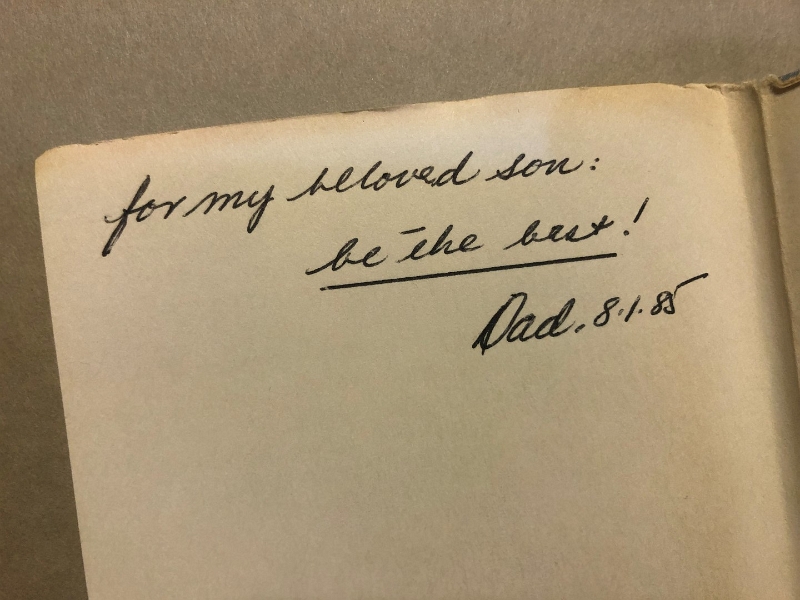 for my beloved son:
be the best!
Dad. 8.1.85